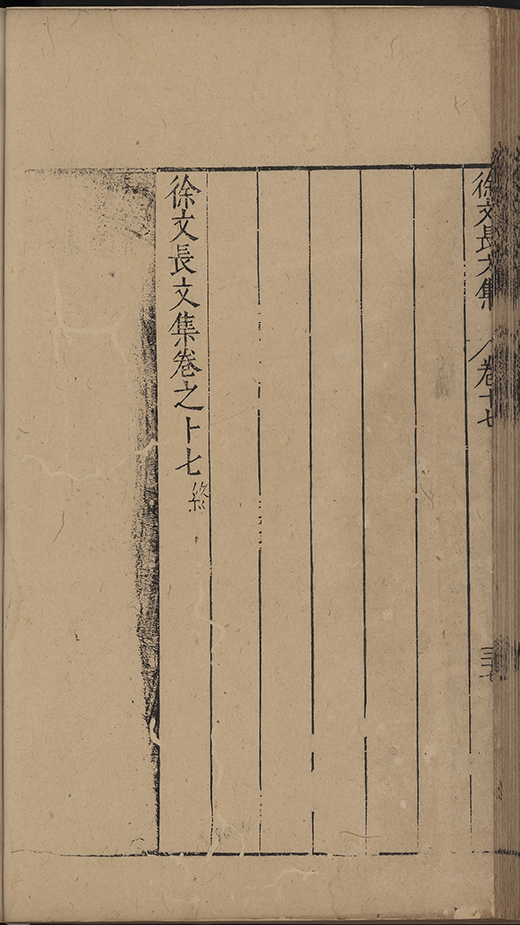 徐文長文集 卷十七
徐文長文集卷之十七終